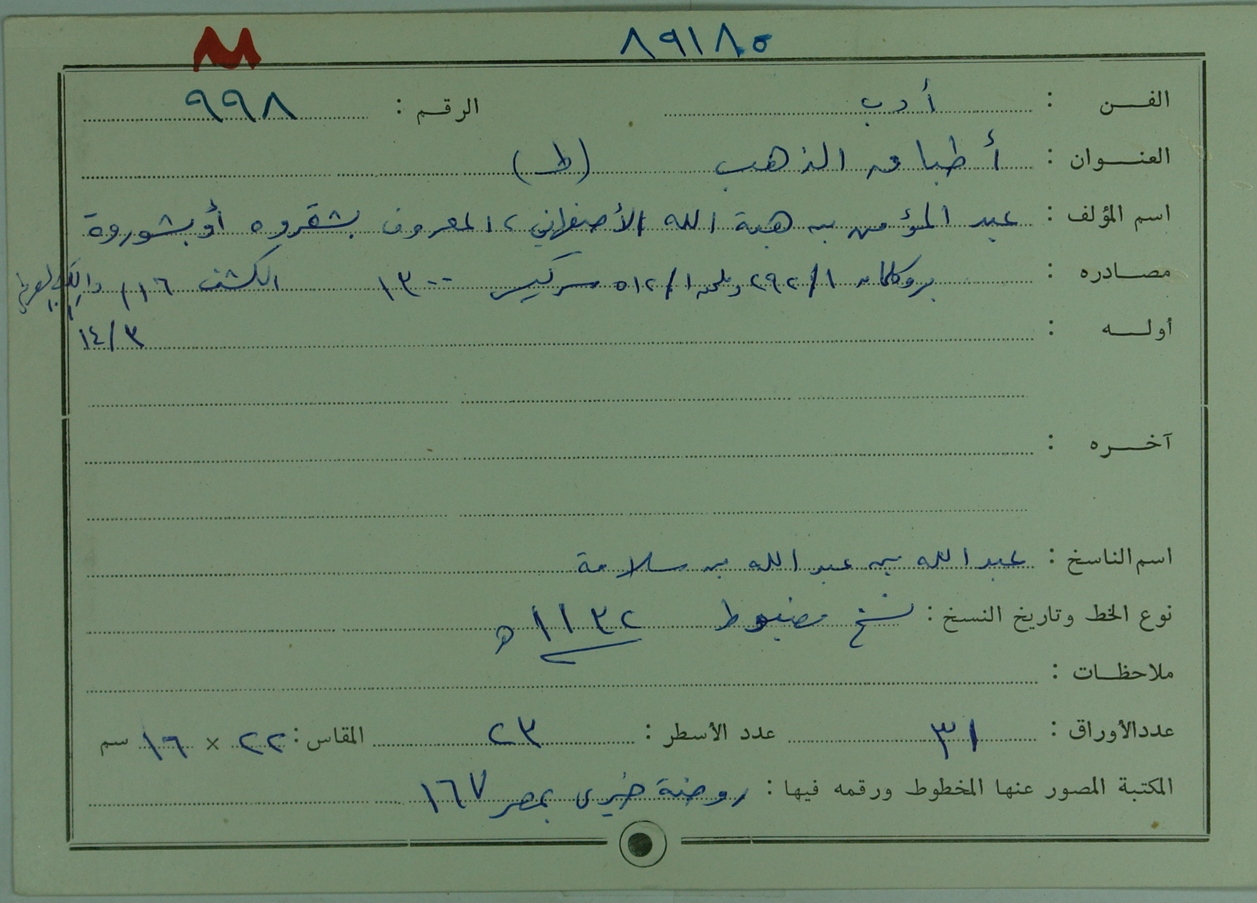 ٨٩١٨٠٥
الفن : أدب الرقم : ٩٩٨
العنوان : أطباق الذهب (ط)
اسم المؤلف : عبد المؤمن بن هبة الله الأصفهاني، المعروف بشقروه أو بشوروة
مصادره : بروكلمان ٢٩٢/١ وملحق ٥١٢/١ سركيس ١٣٠٠ الكشف ١١٦
١٤/٣
أوله :
آخره :
اسم الناسخ : عبد الله بن عبد الله بن سلامة
نوع الخط وتاريخ النسخ : نسخ مضبوط ١١٣٢ هـ
ملاحظات :
عدد الأوراق : ٣١ عدد الأسطر : ٢٣ المقاس : ٢٢ × ١٦ سم
المكتبة المصور عنها المخطوط ورقمه فيها : روضة خيري بمصر ١٦٧